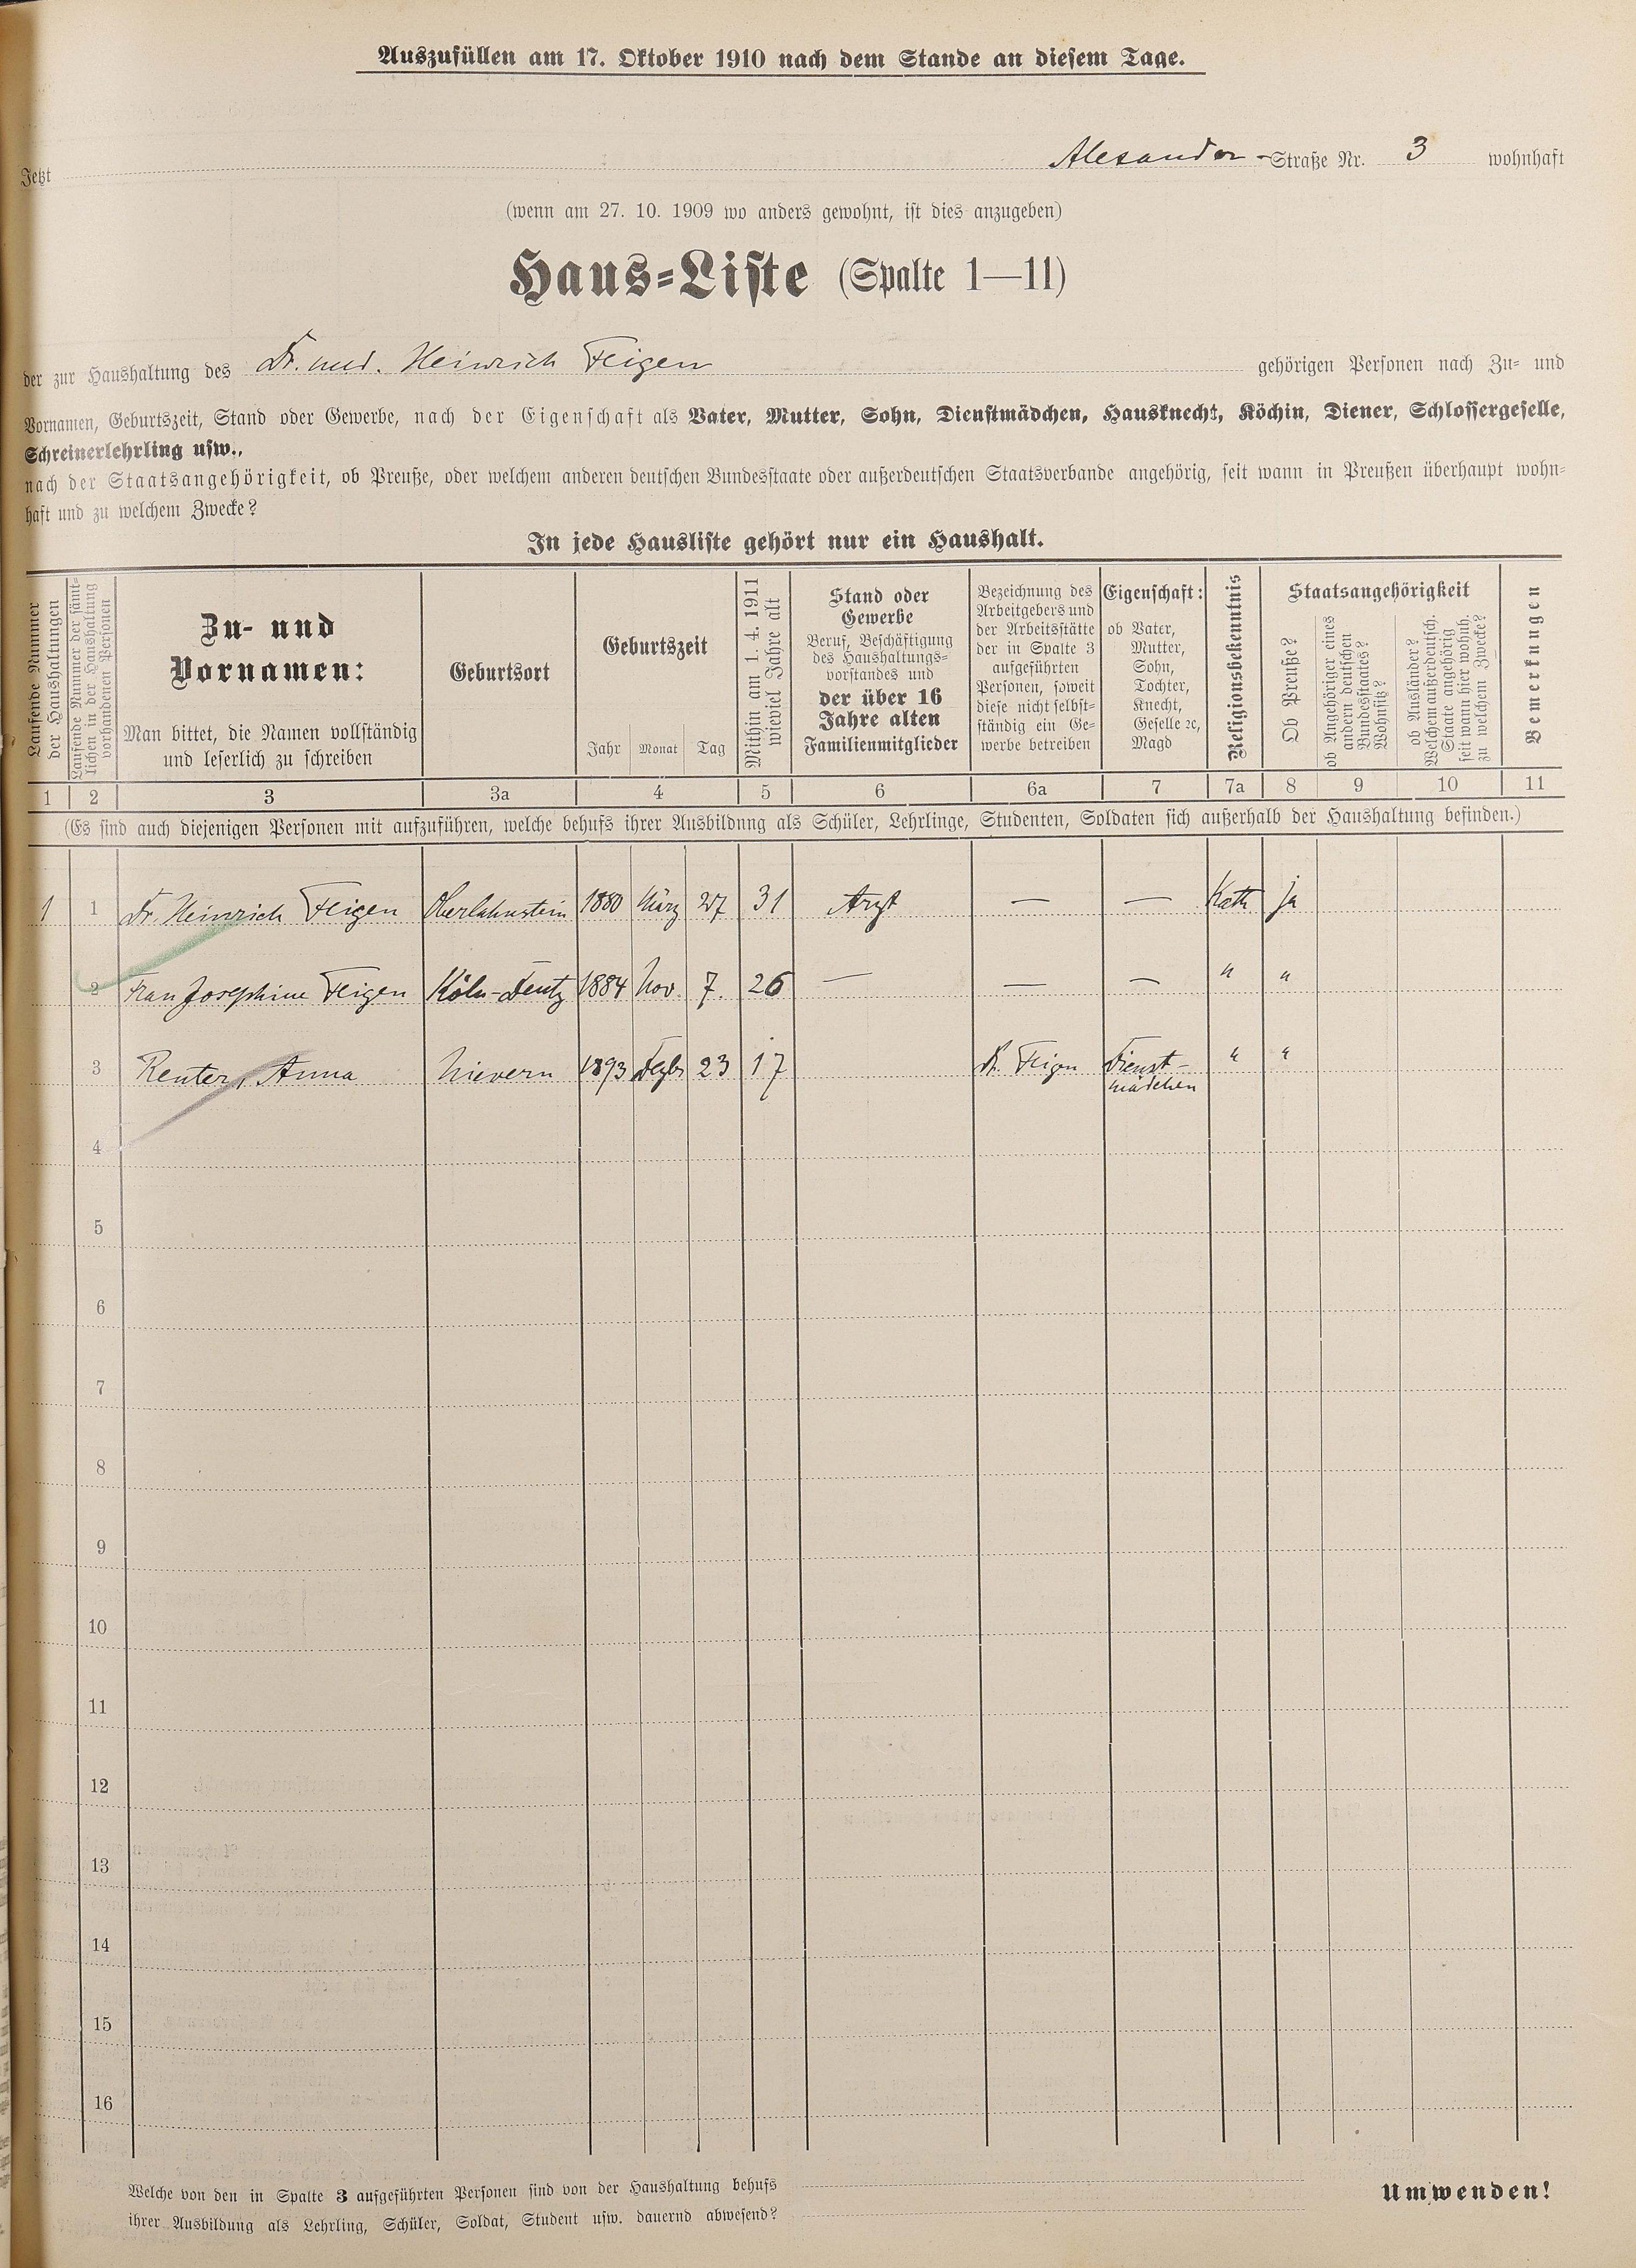 Auszufüllen am 17. Oktober 1910 nach dem Stande an diesem Tage.
Jetzt Alexander-Straße Nr. 3 wohnhaft
(wenn am 27. 10. 1909 wo anders gewohnt, ist dies anzugeben)
Haus-Liste (Spalte 1—11)
der zur Haushaltung des Dr. med. Heinrich Feigen gehörigen Personen nach Zu- und
Vornamen, Geburtszeit, Stand oder Gewerbe, nach der Eigenschaft als Vater, Mutter, Sohn, Dienstmädchen, Hausknecht, Köchin, Diener, Schlossergeselle,
Schreinerlehrling usw.,
nach der Staatsangehörigkeit, ob Preuße, oder welchem anderen deutschen Bundesstaate oder außerdeutschen Staatsverbande angehörig, seit wann in Preußen überhaupt wohn-
haft und zu welchem Zwecke?
In jede Hausliste gehört nur ein Haushalt.
Laufende Nummer
der Haushaltungen
Laufende Nummer der sämt-
lichen in der Haushaltung
vorhandenen Personen
Zu- und
Vornamen:
Man bittet, die Namen vollständig
und leserlich zu schreiben
Geburtsort
Geburtszeit
Jahr Monat Tag
Mithin am 1. 4. 1911
wieviel Jahre alt
Stand oder
Gewerbe
Beruf, Beschäftigung
des Haushaltungs-
vorstandes und
der über 16
Jahre alten
Familienmitglieder
Bezeichnung des
Arbeitgebers und
der Arbeitsstätte
der in Spalte 3
aufgeführten
Personen, soweit
diese nicht selbst-
ständig ein Ge-
werbe betreiben
Eigenschaft:
ob Vater,
Mutter,
Sohn,
Tochter,
Knecht,
Geselle ꝛc,
Magd
Religionsbekenntnis
Staatsangehörigkeit
Ob Preuße?
ob Angehöriger eines
andern deutschen
Bundesstaates?
Wohnsitz?
ob Ausländer?
Welchem außerdeutsch.
Staate angehörig
seit wann hier wohnh.
zu welchem Zwecke?
Bemerkungen
1 2 3 3a 4 5 6 6a 7 7a 8 9 10 11
(Es sind auch diejenigen Personen mit aufzuführen, welche behufs ihrer Ausbildung als Schüler, Lehrlinge, Studenten, Soldaten sich außerhalb der Haushaltung befinden.)
1 1 Dr. Heinrich Feigen Oberlahnstein 1880 März 27 31 Arzt — — Kath ja
2 Frau Josephine Feigen Köln-Deutz 1884 Nov. 7. 26 — — — " "
3 Reuter, Anna Nievern 1893 Dezbr 23 17 Dr. Feigen Dienst- " "
mädchen
4
5
6
7
8
9
10
11
12
13
14
15
16
Welche von den in Spalte 3 aufgeführten Personen sind von der Haushaltung behufs
ihrer Ausbildung als Lehrling, Schüler, Soldat, Student usw. dauernd abwesend?
Umwenden!